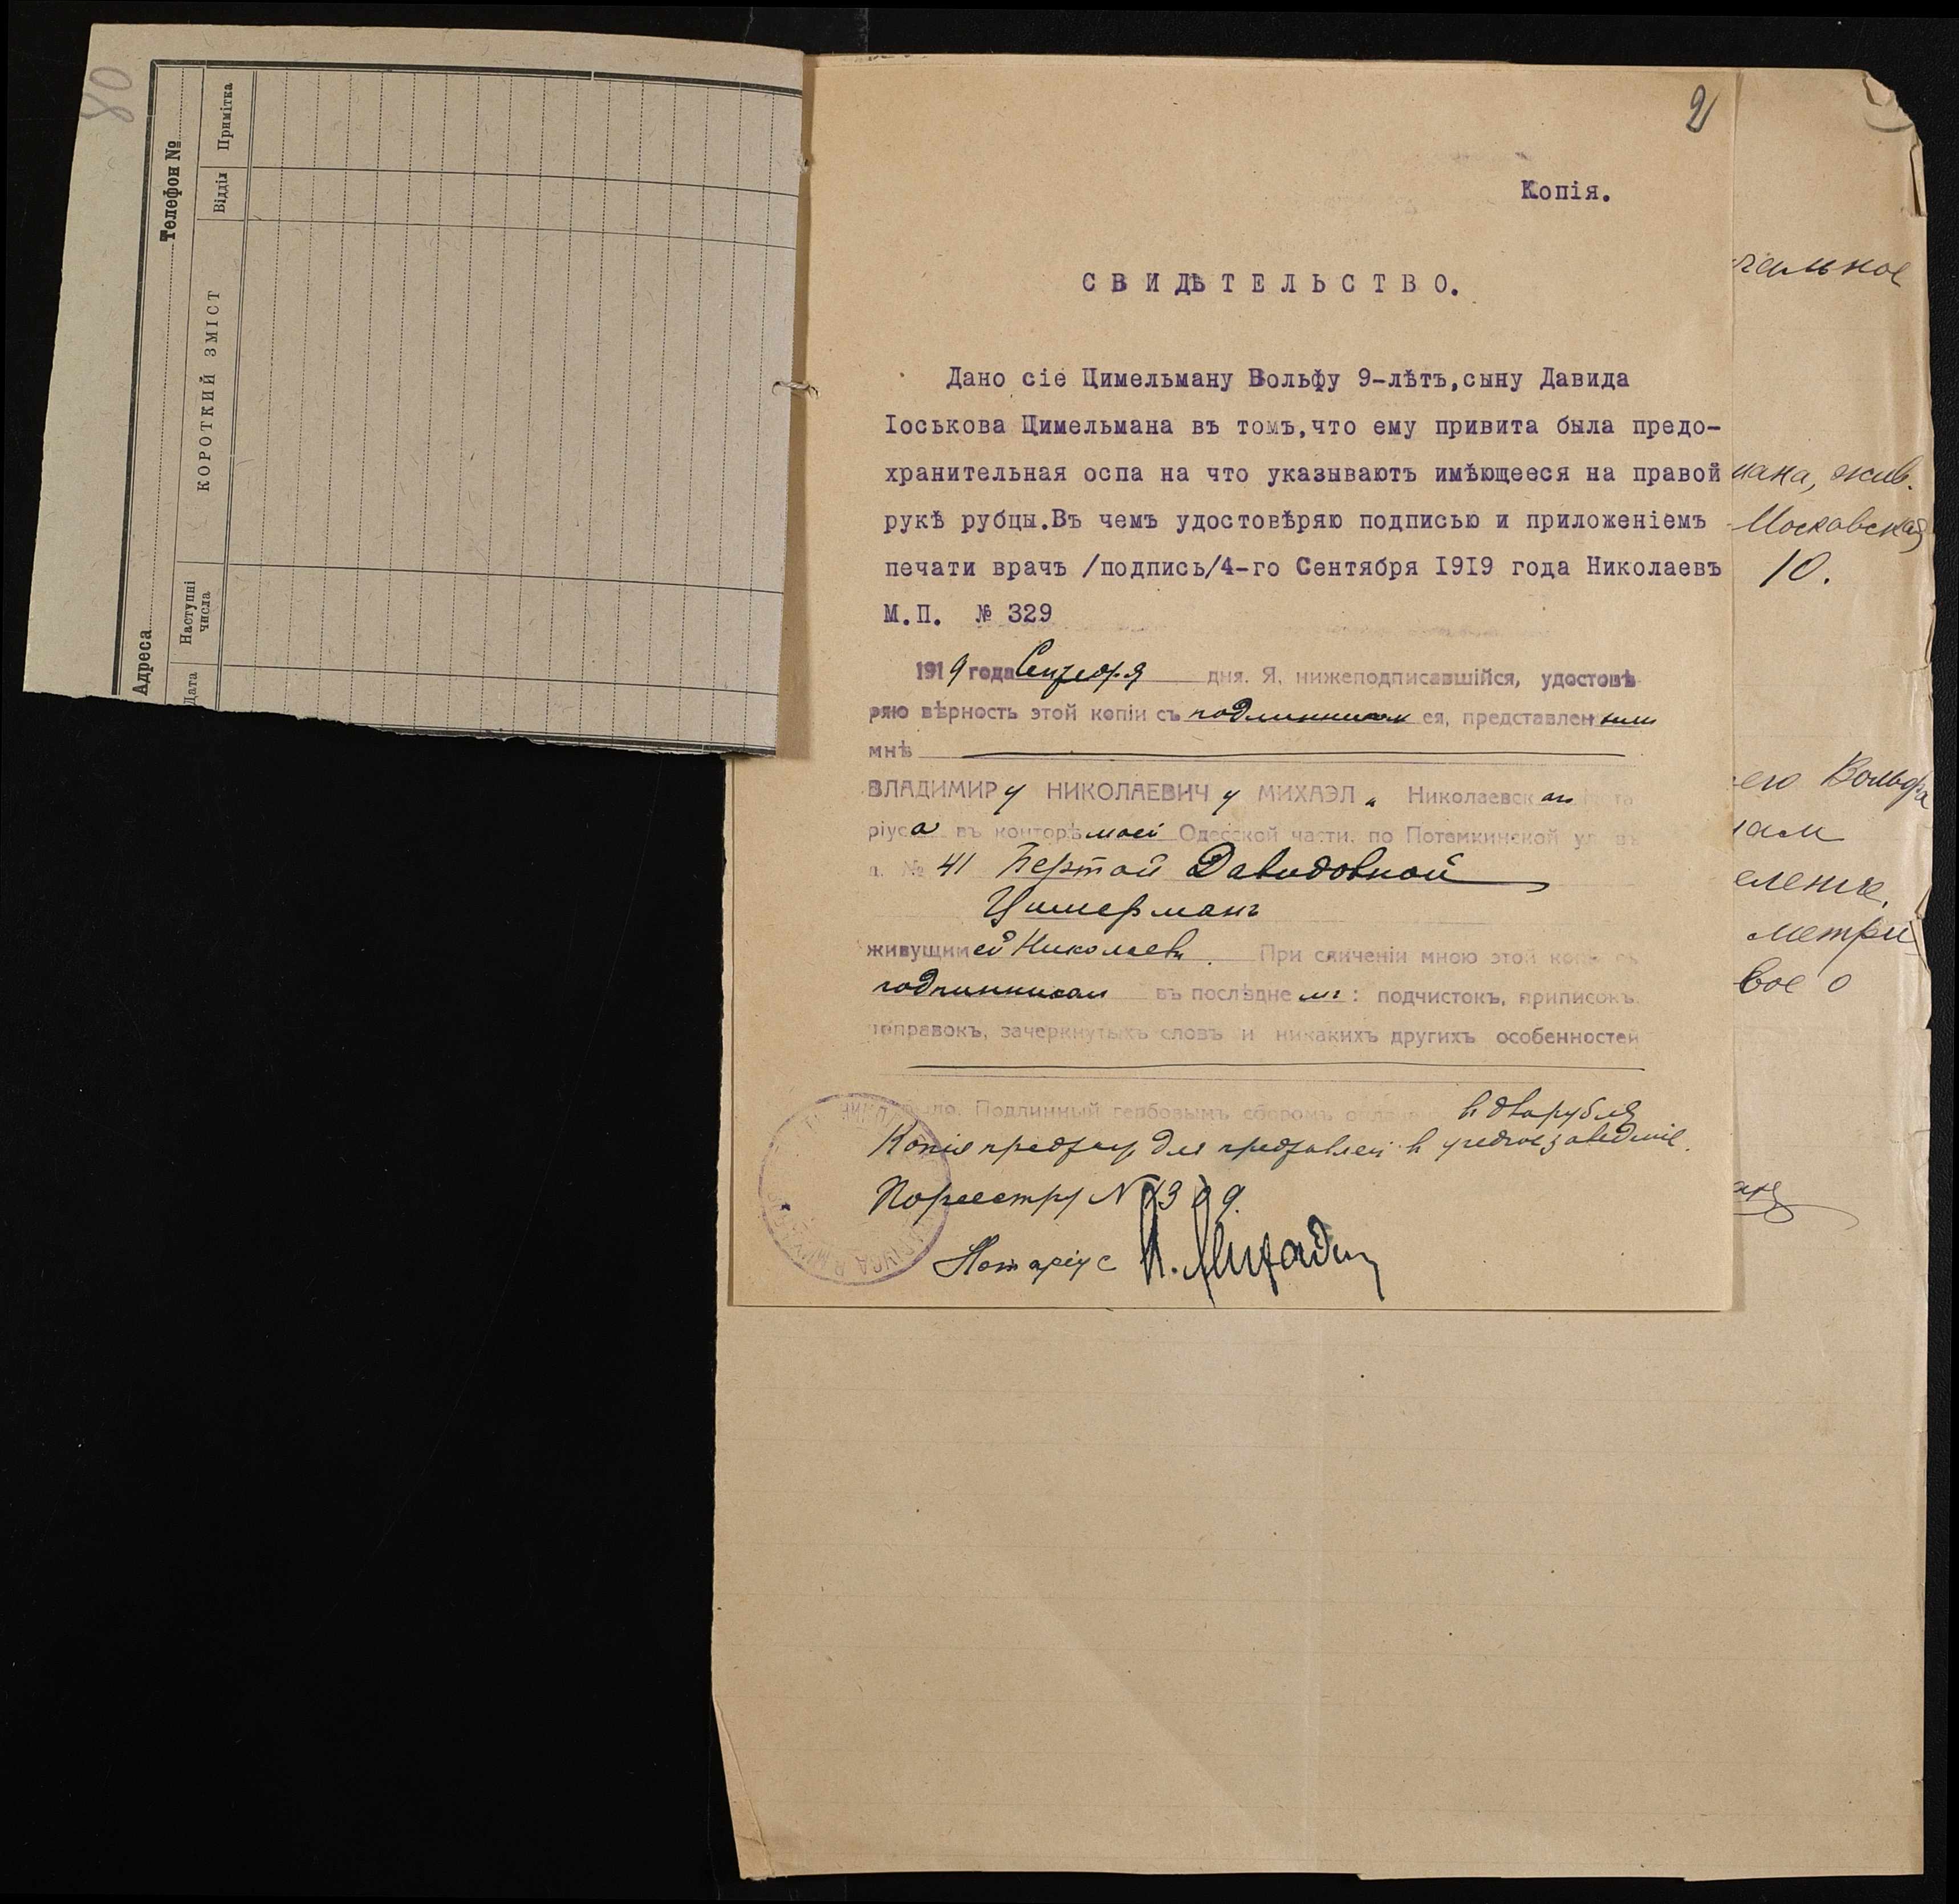 80
Адреса
Телефон №
Дата
Наступні числа
КОРОТКИЙ ЗМІСТ
Відділ
Примітка
2
Копія.
СВИДѢТЕЛЬСТВО.
Дано сіе Цимельману Вольфу 9-лѣтъ,сыну Давида
Іоськова Цимельмана въ томъ,что ему привита была предо-
хранительная оспа на что указываютъ имѣющееся на правой
рукѣ рубцы.Въ чемъ удостовѣряю подписью и приложеніемъ
печати врачъ /подпись/4-го Сентября 1919 года Николаевъ
М.П. № 329
1919 года Сентября дня. Я, нижеподписавшійся, удостовѣ-
ряю вѣрность этой копіи съ подлинником ея, представленным
мнѣ
ВЛАДИМИРу НИКОЛАЕВИЧу МИХАЭЛ Николаевск
ріуса въ конторѣ моей Одесской части, по Потемкинской ул. въ
д. № 41 Бертой Давидовной
Цимерманъ
живущией Николаевъ. При сличеніи мною этой копіи съ
подлинником въ послѣднемъ: подчистокъ, приписокъ,
поправокъ, зачеркнутыхъ словъ и никакихъ другихъ особенностей
было. Подлинный гербовымъ сборомъ в два рубля
Копія для в учебное заведеніе.
По реестру N
Нотаріус
чельное
мана, жив.
Московская
10.
его Вольфа
метри
вое о